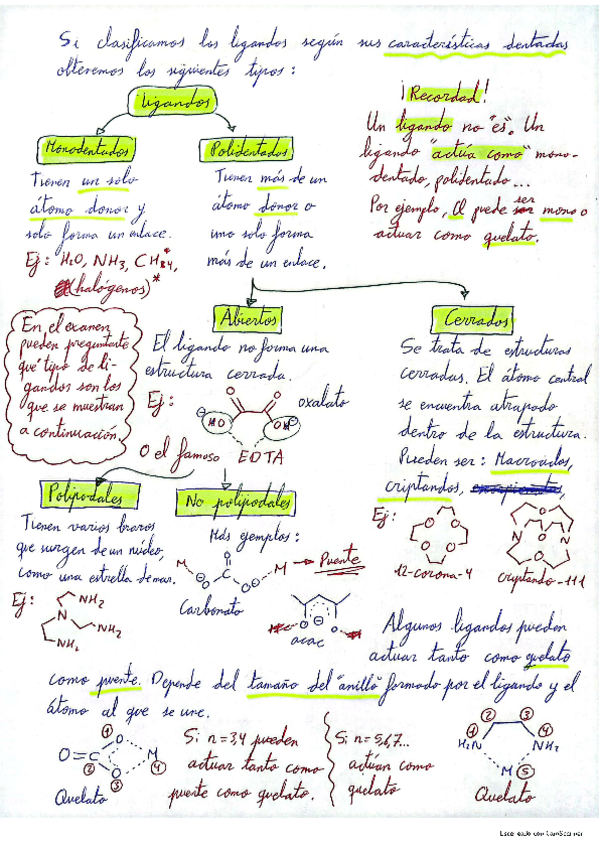 Si clasificamos los ligandos según sus características dentadas
obtenemos los siguientes tipos:
Ligandos
Monodentados
Tienen un solo
átomo donor y
solo forma un enlace.
Ej: H2O, NH3, CH3*,
(halógenos)*
Polidentados
Tienen más de un
átomo donor o
uno solo forma
más de un enlace.
¡Recordad!
Un ligando no "es". Un
ligando "actúa como" mono-
dentado, polidentado...
Por ejemplo, Cl puede ser mono o
actuar como quelato.
En el examen
pueden preguntarte
qué tipo de li-
gandos son los
que se muestran
a continuación.
Abiertos
El ligando no forma una
estructura cerrada.
Ej:
O
O
HO
OH
oxalato
O el famoso EDTA
Cerrados
Se trata de estructuras
cerradas. El átomo central
se encuentra atrapado
dentro de la estructura.
Pueden ser: Macrociclos,
criptandos,
Ej:
O
O
O
O
12-corona-4
O
N
N
O
O
criptando-111
Polipodales
Tienen varios brazos
que surgen de un núcleo,
como una estrella de mar.
Ej:
NH2
N
NH2
NH2
No polipodales
Más ejemplos:
M
O
C
O
O
M → Puente
Carbonato
O
O
acac
Algunos ligandos pueden
actuar tanto como quelato
como puente. Depende del tamaño del "anillo" formado por el ligando y el
átomo al que se une.
O=C
O
O
M
1
2
3
4
Quelato
Si n=3,4 pueden
actuar tanto como
puente como quelato.
Si n=5,6,7...
actúan como
quelato
2
3
1
4
H2N
NH2
M
5
Quelato
Escaneado con CamScanner